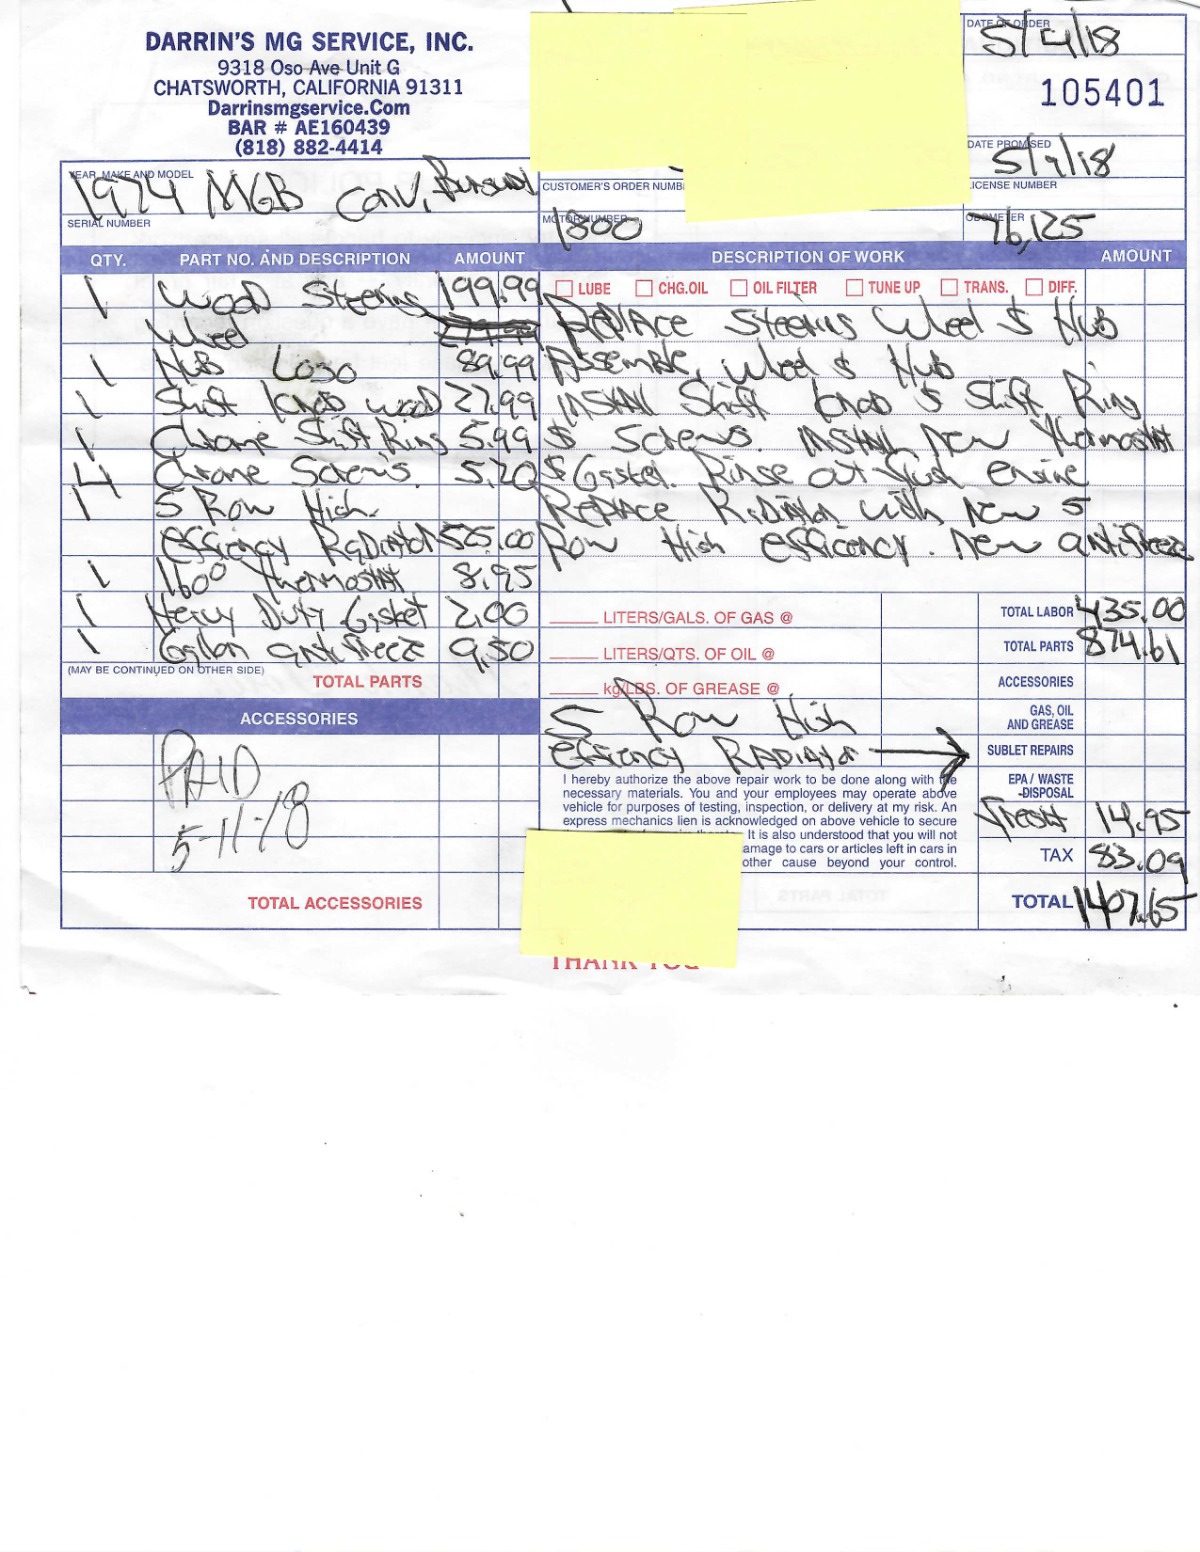 DARRIN'S MG SERVICE, INC.
9318 Oso Ave Unit G
CHATSWORTH, CALIFORNIA 91311
Darrinsmgservice.Com
BAR # AE160439
(818) 882-4414
DATE OF ORDER
5/4/18
105401
DATE PROMISED
5/9/18
YEAR, MAKE AND MODEL
1974 MGB conv,
CUSTOMER'S ORDER NUMB
LICENSE NUMBER
SERIAL NUMBER
MOTOR NUMBER
1800
ODOMETER
76,125
QTY. PART NO. AND DESCRIPTION AMOUNT DESCRIPTION OF WORK AMOUNT
LUBE CHG.OIL OIL FILTER TUNE UP TRANS. DIFF.
1 Wood Steering 199.99
Wheel
1 Hub 89.99
1 Shift knob wood 27.99
1 Chrome Shift Ring 5.99
4 Chrome Screws. 5.20
1 5 Row High.
efficency Radiator 525.00
1 160° thermostat 8.95
1 Heavy Duty Gasket 2.00
1 Gallon antifreeze 9.50
(MAY BE CONTINUED ON OTHER SIDE)
TOTAL PARTS
Replace Steering Wheel & Hub
Assemble, Wheel & Hub
install Shift knob & Shift Ring
& Screws. install new thermostat
& Gasket. Rinse out flush engine
Replace Radiator with new 5
Row High efficency. new antifreeze
LITERS/GALS. OF GAS @
LITERS/QTS. OF OIL @
kg/LBS. OF GREASE @
5 Row High
efficency RADIATOR
TOTAL LABOR 435.00
TOTAL PARTS 874.61
ACCESSORIES
GAS, OIL
AND GREASE
SUBLET REPAIRS
EPA / WASTE
-DISPOSAL
14.95
TAX 83.09
TOTAL 1407.65
ACCESSORIES
PAID
5-11-18
TOTAL ACCESSORIES
I hereby authorize the above repair work to be done along with the
necessary materials. You and your employees may operate above
vehicle for purposes of testing, inspection, or delivery at my risk. An
express mechanics lien is acknowledged on above vehicle to secure
It is also understood that you will not
amage to cars or articles left in cars in
other cause beyond your control.
THANK YOU